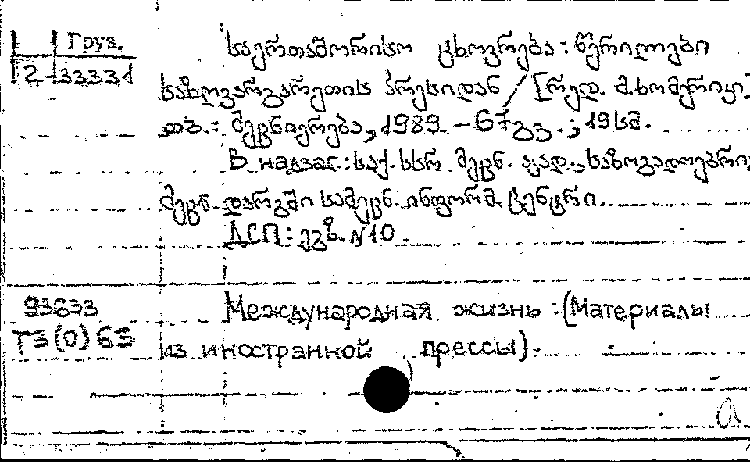 Груз.
2 33331
საერთაშორისო ცხოვრება: წერილები
საზღვარგარეთის პრესიდან / [რედ.
თბ.: მეცნიერება, 1989. - 67გვ.; 19სმ.
В надзаг.: საქ. სსრ მეცნ. აკად., საზოგადოებრივ
მეცნ. დარგში სამეცნ. ინფორმ. ცენტრი.
ДСП: ეგზ. N10.
93633 Международная жизнь: (Материалы
ТЗ(0)65 из иностранной прессы).